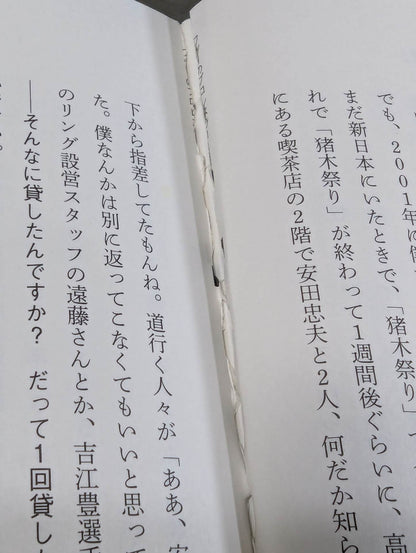 でも、2001年に
まだ新日本にいたときで、「猪木祭り」
れで「猪木祭り」が終わって1週間後ぐらいに、高
にある喫茶店の2階で安田忠夫と2人、何だか知ら
下から指差してたもんね。道行く人々が「ああ、安
た。僕なんかは別に返ってこなくてもいいと思って
のリング設営スタッフの遠藤さんとか、吉江豊選手
――そんなに貸したんですか？　だって1回貸し